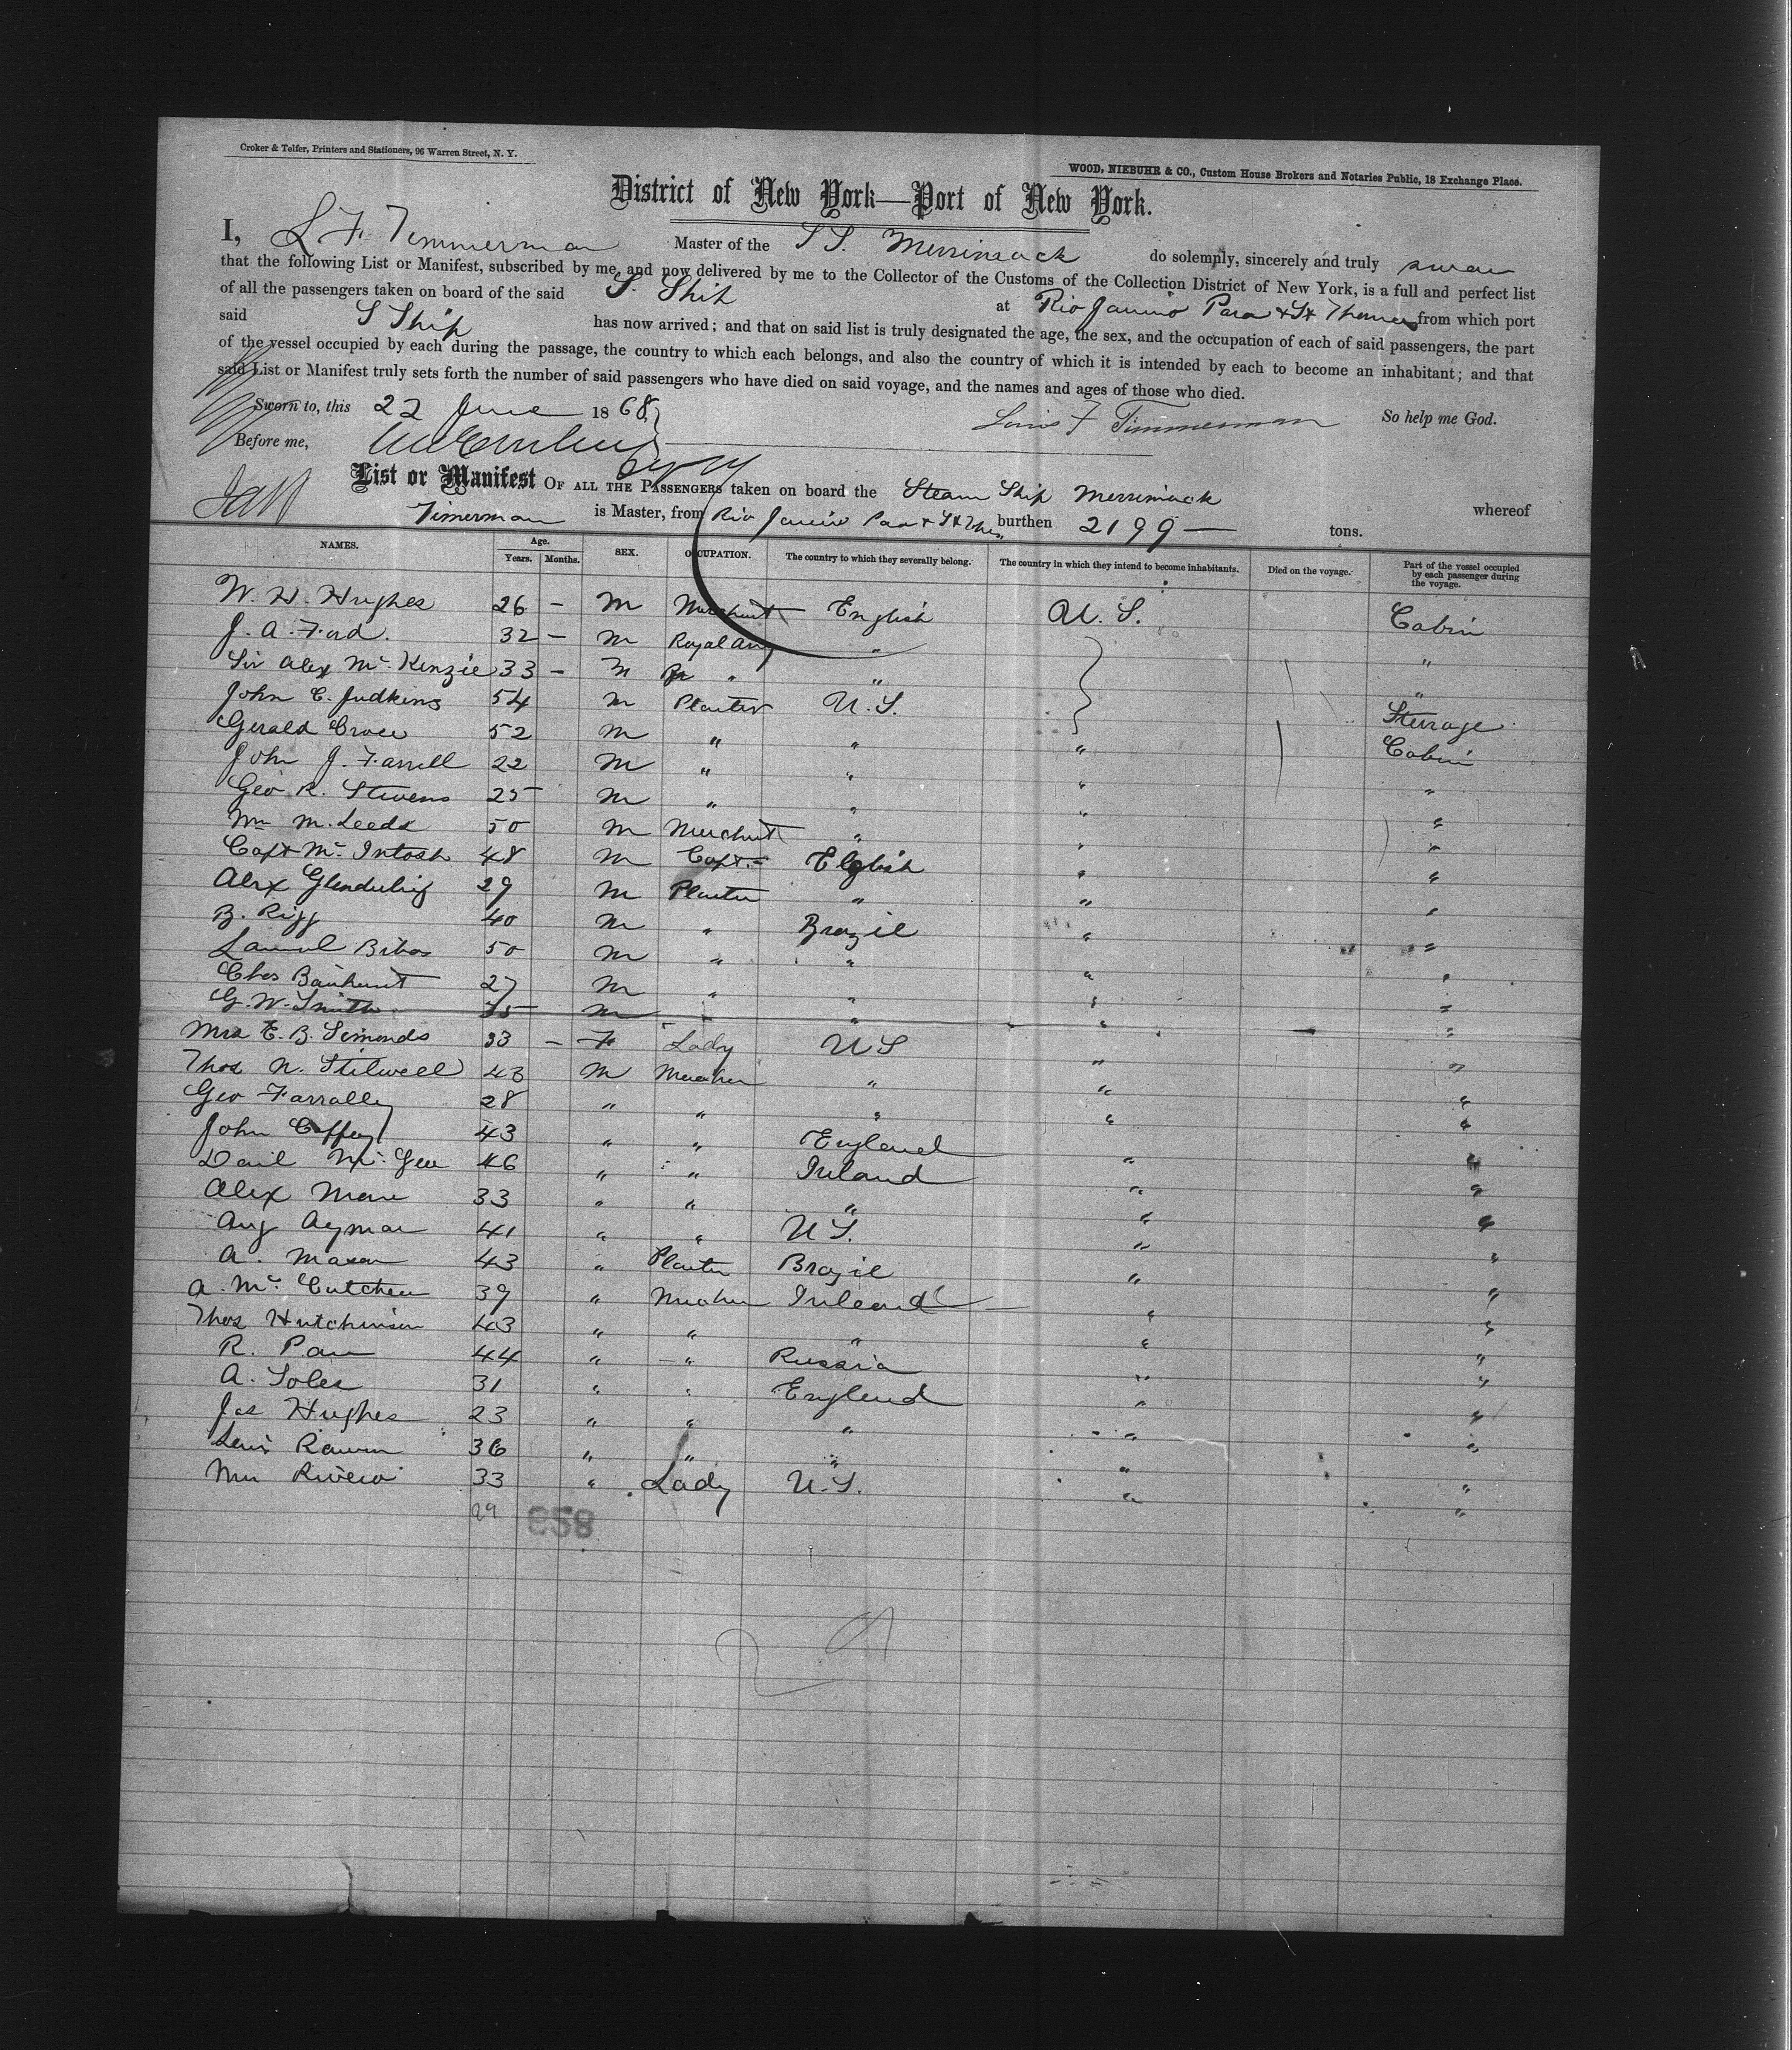 Croker & Telfer, Printers and Stationers, 96 Warren Street, N. Y.
WOOD, NIEBUHR & CO., Custom House Brokers and Notaries Public, 18 Exchange Place.
District of New York—Port of New York.
I, L F Timmerman Master of the S S. Merrimack do solemnly, sincerely and truly swear
that the following List or Manifest, subscribed by me, and now delivered by me to the Collector of the Customs of the Collection District of New York, is a full and perfect list
of all the passengers taken on board of the said S. Ship at Rio Janiro Para & St Thomas from which port
said S Ship has now arrived; and that on said list is truly designated the age, the sex, and the occupation of each of said passengers, the part
of the vessel occupied by each during the passage, the country to which each belongs, and also the country of which it is intended by each to become an inhabitant; and that
said List or Manifest truly sets forth the number of said passengers who have died on said voyage, and the names and ages of those who died.
Sworn to, this 22 June 1868 Louis F Timmerman So help me God.
Before me,
List or Manifest OF ALL THE PASSENGERS taken on board the Steam Ship Merrimack whereof
Timerman is Master, from Rio Janiro Para & St Thos. burthen 2199 — tons.
NAMES. Age. Years. Months. SEX. OCCUPATION. The country to which they severally belong. The country in which they intend to become inhabitants. Died on the voyage. Part of the vessel occupied by each passenger during the voyage.
W. H. Hughes 26 — M Merchant English U. S. Cabin
J. A. Ford. 32 — M Royal Army " "
Sir Alex Mc Kenzie 33 — M " " "
John C. Judkins 54 M Planter U. S. Sturage
Gerald Croce 52 M " " " Cabin
John J. Farrell 22 M " " " "
Geo R. Stevens 25 M " " " "
Wm M. Leeds 50 M Merchant " " "
Capt Mc Intosh 48 M Capt. Elglish " "
Alex Glenduling 29 M Planter " " "
B. Rigg 40 M " Brazil " "
50 M " " " "
Chas 27 M " " " "
G. W. Smith 35 M " " " "
Mrs E. B. Simonds 33 — F Lady U S " "
Thos N. Stilwell 43 M " " "
Geo Farralley 28 " " " " "
John Coffey 43 " " England " "
Danl Mc Gee 46 " " Ireland " "
Alex 33 " " " " "
Aug Aymar 41 " " U S. " "
A. Mason 43 " Planter Brazil " "
A. Mc Cutchen 39 " Ireland " "
Thos Hutchinson 43 " " " " "
R. 44 " " Russia " "
A. Soles 31 " " England " "
Jas Hughes 23 " " " " "
36 " " " " "
33 " Lady U. S. " "
29 858
29